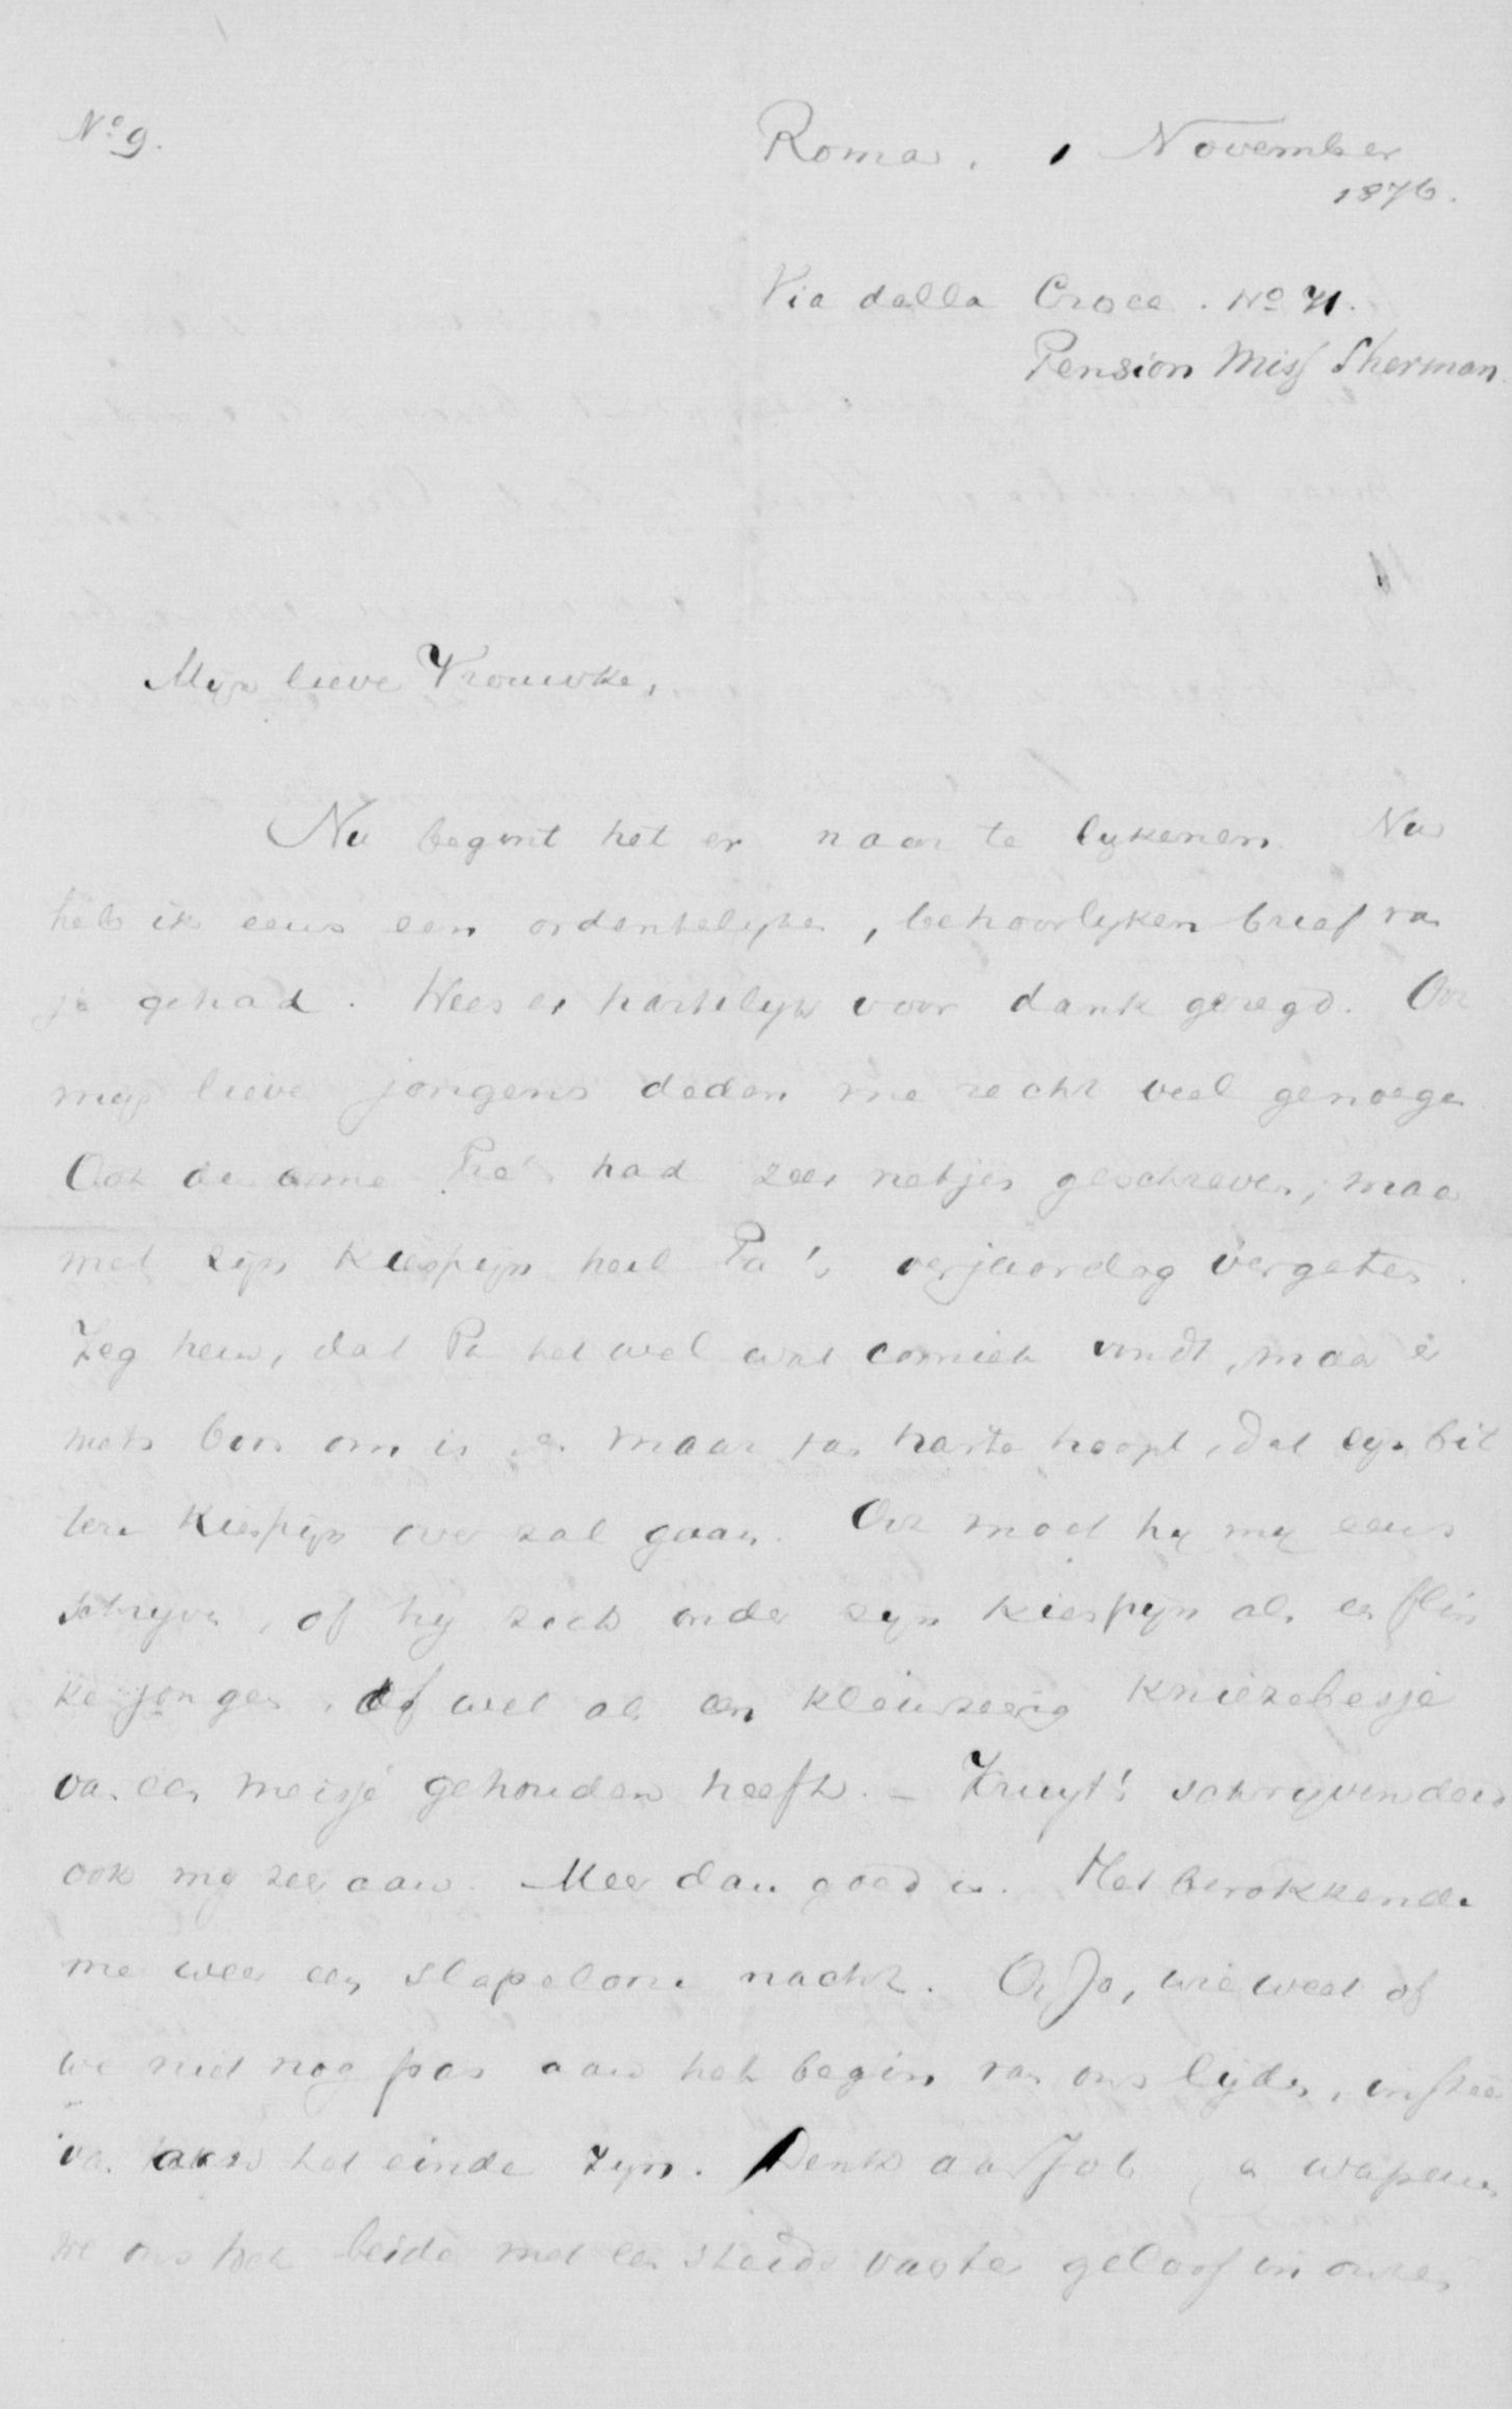 No 9.
Roma. 1 November
1876.
Via della Croce. No 71.
Pension Miss Sherman.
Myn lieve Vrouwke,
Nu begint het er naar te lykenen. Nu
heb ik eens een ordentelyke, behoorlyken brief van
je gehad. Wees er hartelyk voor dank gezegd. Ook
myn lieve jongens deden me recht veel genoegen
Ook de arme Piet had zeer netjes geschreven, maar
met zyn kiespyn heel Pa's verjaardag vergeten.
Zeg hem, dat Pa het wel wat comiek vindt, maar er
niets boos om is en maar van harte hoopt, dat zyn bit
tere kiespyn over zal gaan. Ook moet hy my eens
schryven, of hy zich onder zyn kiespyn als een flin
ke jongen, of wel als een kleinzeerig kniezebesje
van een meisje gehouden heeft. – Kruyt's schryven deed
ook my zeer aan. Meer dan goed is. Het berokkende
me weer een slapeloze nacht. Och Jo, wie weet of
we niet nog pas aan het begin van ons lyden, instee
van aan het einde zyn. Denk aan Job, en wapenen
we ons beide met een steeds vaster geloof in onze